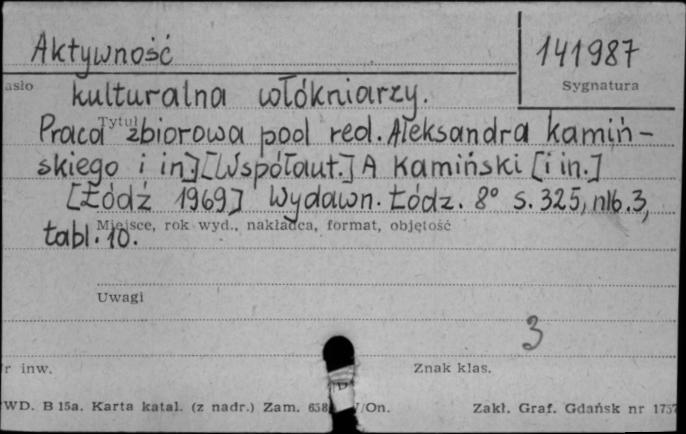 Aktywność
141987
asło
Sygnatura
kulturalna włókniarzy.
Tytuł
Praca zbiorowa pod red. Aleksandra Kamiń-
skiego i in.] [Współaut.] A Kamiński [i in.]
[Łódź 1969] Wydawn. Łódz. 8° s. 325, nlb. 3,
Miejsce, rok wyd., nakładca, format, objętość
tabl. 10.
Uwagi
3
r inw.
Znak klas.
WD. B 15a. Karta katal. (z nadr.) Zam. 658 /On.
Zakł. Graf. Gdańsk nr 1757